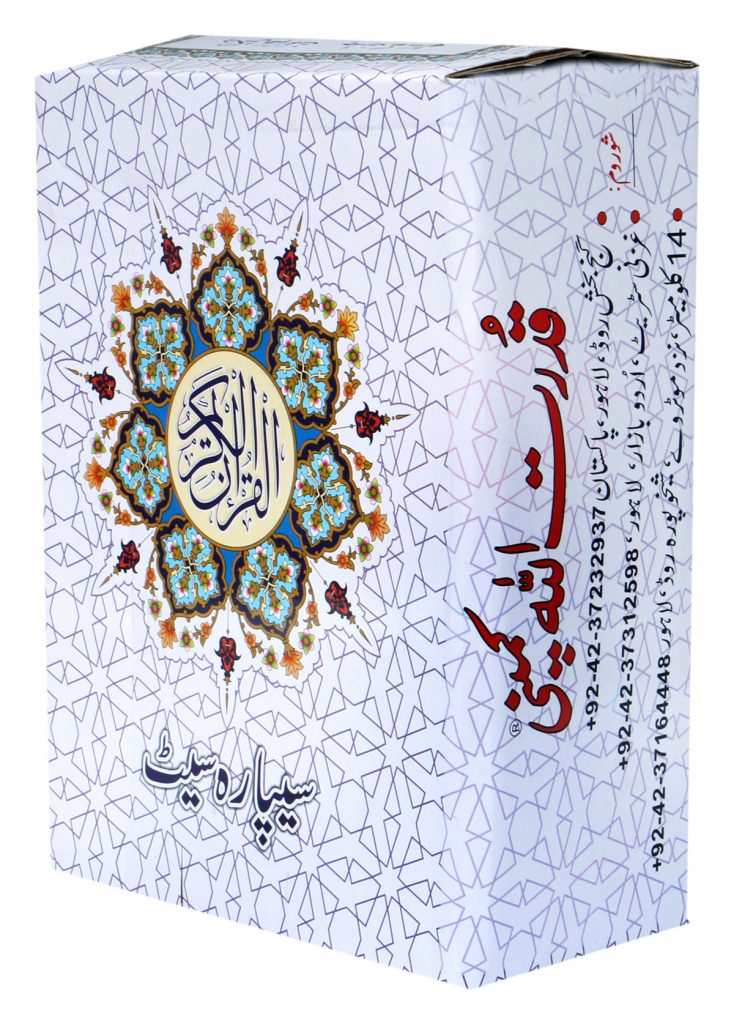 القرآن الكريم
سیپارہ سیٹ
قُدرت اللہ کمپنی
®
شوروم:
گنج بخش روڈ، لاہور، پاکستان +92-42-37232937
غزنی سٹریٹ، اُردو بازار، لاہور، +92-42-37312598
14 کلومیٹر، نزد موٹروے، شیخوپورہ روڈ، لاہور +92-42-37164448